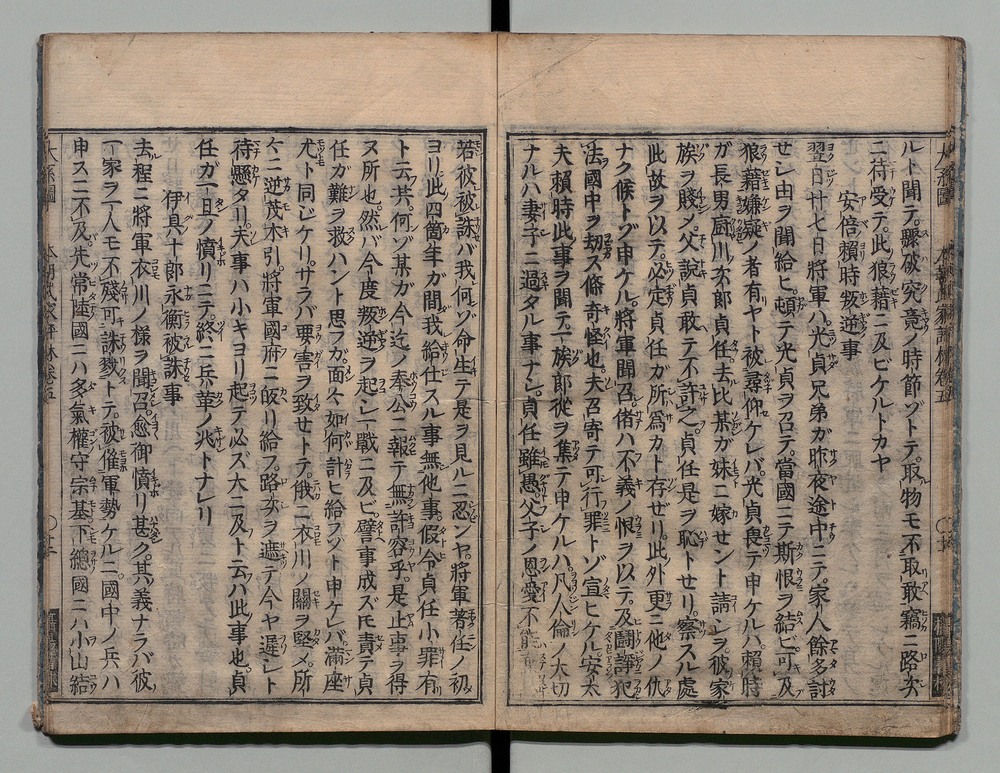 ルト聞テ。驟破究竟ノ時節ゾトテ。取物モ不取敢竊ニ路次
ニ待受テ。此狼藉ニ及ビケルトカヤ
安倍賴時叛逆事
翌日廿七日將軍ハ。光貞兄弟ガ昨夜途中ニテ。家人餘多討
セシ由ヲ聞給ヒ。頓テ光貞ヲ召テ。當國ニテ斯恨ヲ結ビ。可及
狼藉嫌疑ノ者有ヤト被尋仰ケレバ。光貞畏テ申ケルハ。賴時
ガ長男厨川次郎貞任。去比某ガ妹ニ嫁セント請シヲ。彼家
族ヲ賤メ。父説貞敢テ不許之。貞任是ヲ恥トせリ。察スル處
此故ヲ以テ。必定貞任ガ所爲カト存ぜリ。此外更ニ他ノ仇
ナク候トゾ申ケル。將軍聞召偖ハ不義ノ恨ヲ以テ。及鬪諍犯
法國中ヲ劫ス條奇怪也。夫召寄テ可行罪トゾ宣ヒケル。安太
夫賴時此事ヲ聞テ。一族郎從ヲ集テ申ケルハ。凡人倫ノ大切
ナルハ妻子ニ過タル事ナシ。貞任雖愚。父子ノ恩愛不能
若彼被誅バ我何ゾ命生テ是ヲ見ルニ忍ンヤ。將軍著任ノ初
ヨリ。此四箇年ガ間我給仕スル事無他事。假令貞任小罪有
ト云共。何ゾ某ガ今迄ノ奉公ニ報テ無許容乎。是止事ヲ得
ヌ所也。然バ今度叛逆ヲ起シ一戰ニ及ビ。譬事成ズ𪜈責テ貞
任ガ難ヲ救ハント思ヲガ。面々如何計ヒ給フゾト申ケレバ。滿座
尤ト同ジケリ。サラバ要害ヲ致せトテ。俄ニ衣川ノ關ヲ堅メ。所
々ニ逆茂木引。將軍國府ニ皈リ給フ。路次ヲ遮テ今ヤ遲シト
待懸タリ。夫事ハ小キヨリ起テ必ズ大ニ及トニ云ハ此事也。貞
任ガ一旦ノ憤リニテ。終ニ兵革ノ兆トナレリ
伊具十郎永衡被誅事
去程ニ將軍衣川ノ様ヲ聞召。愈御憤リ甚ク。其義ナラバ彼
一家ヲ一人モ不殘可誅戮トテ。被催軍勢ケルニ。國中ノ兵ハ
申スニ不及。先常陸國ニハ多氣權守宗基。下總國ニハ小山結